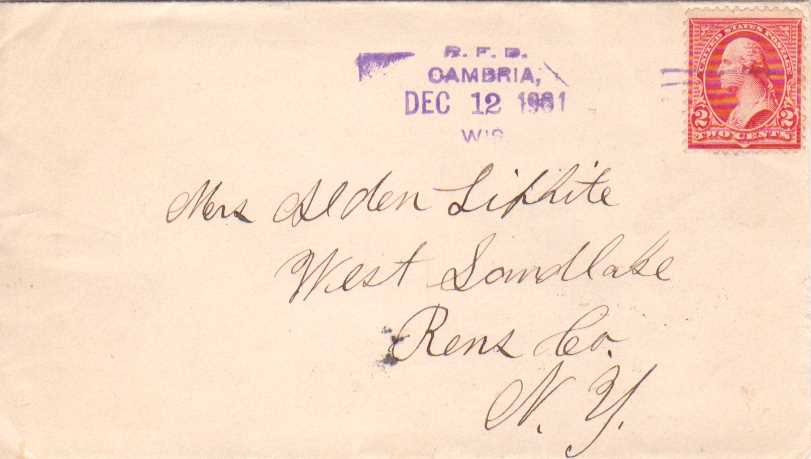 R. F. D.
CAMBRIA,
DEC 12 1901
WIS
UNITED STATES POSTAGE
2 2
TWO CENTS
Mrs Alden Liphite
West Sandlake
Rens Co.
N. Y.